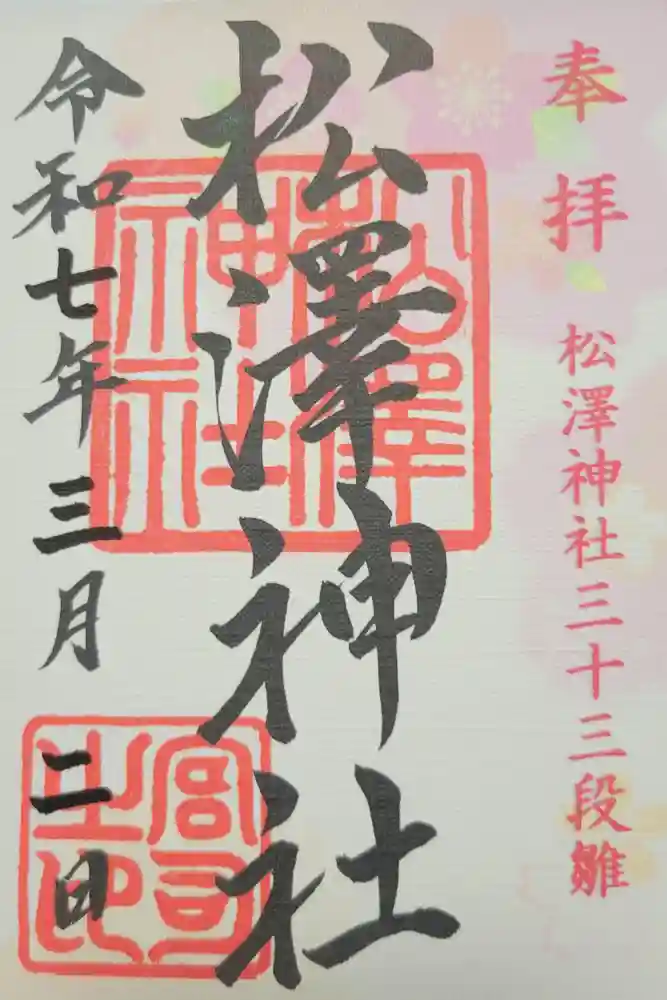 奉拝
松澤神社三十三段雛
松澤神社
令和七年三月二日
松澤
神社
宮司
之印